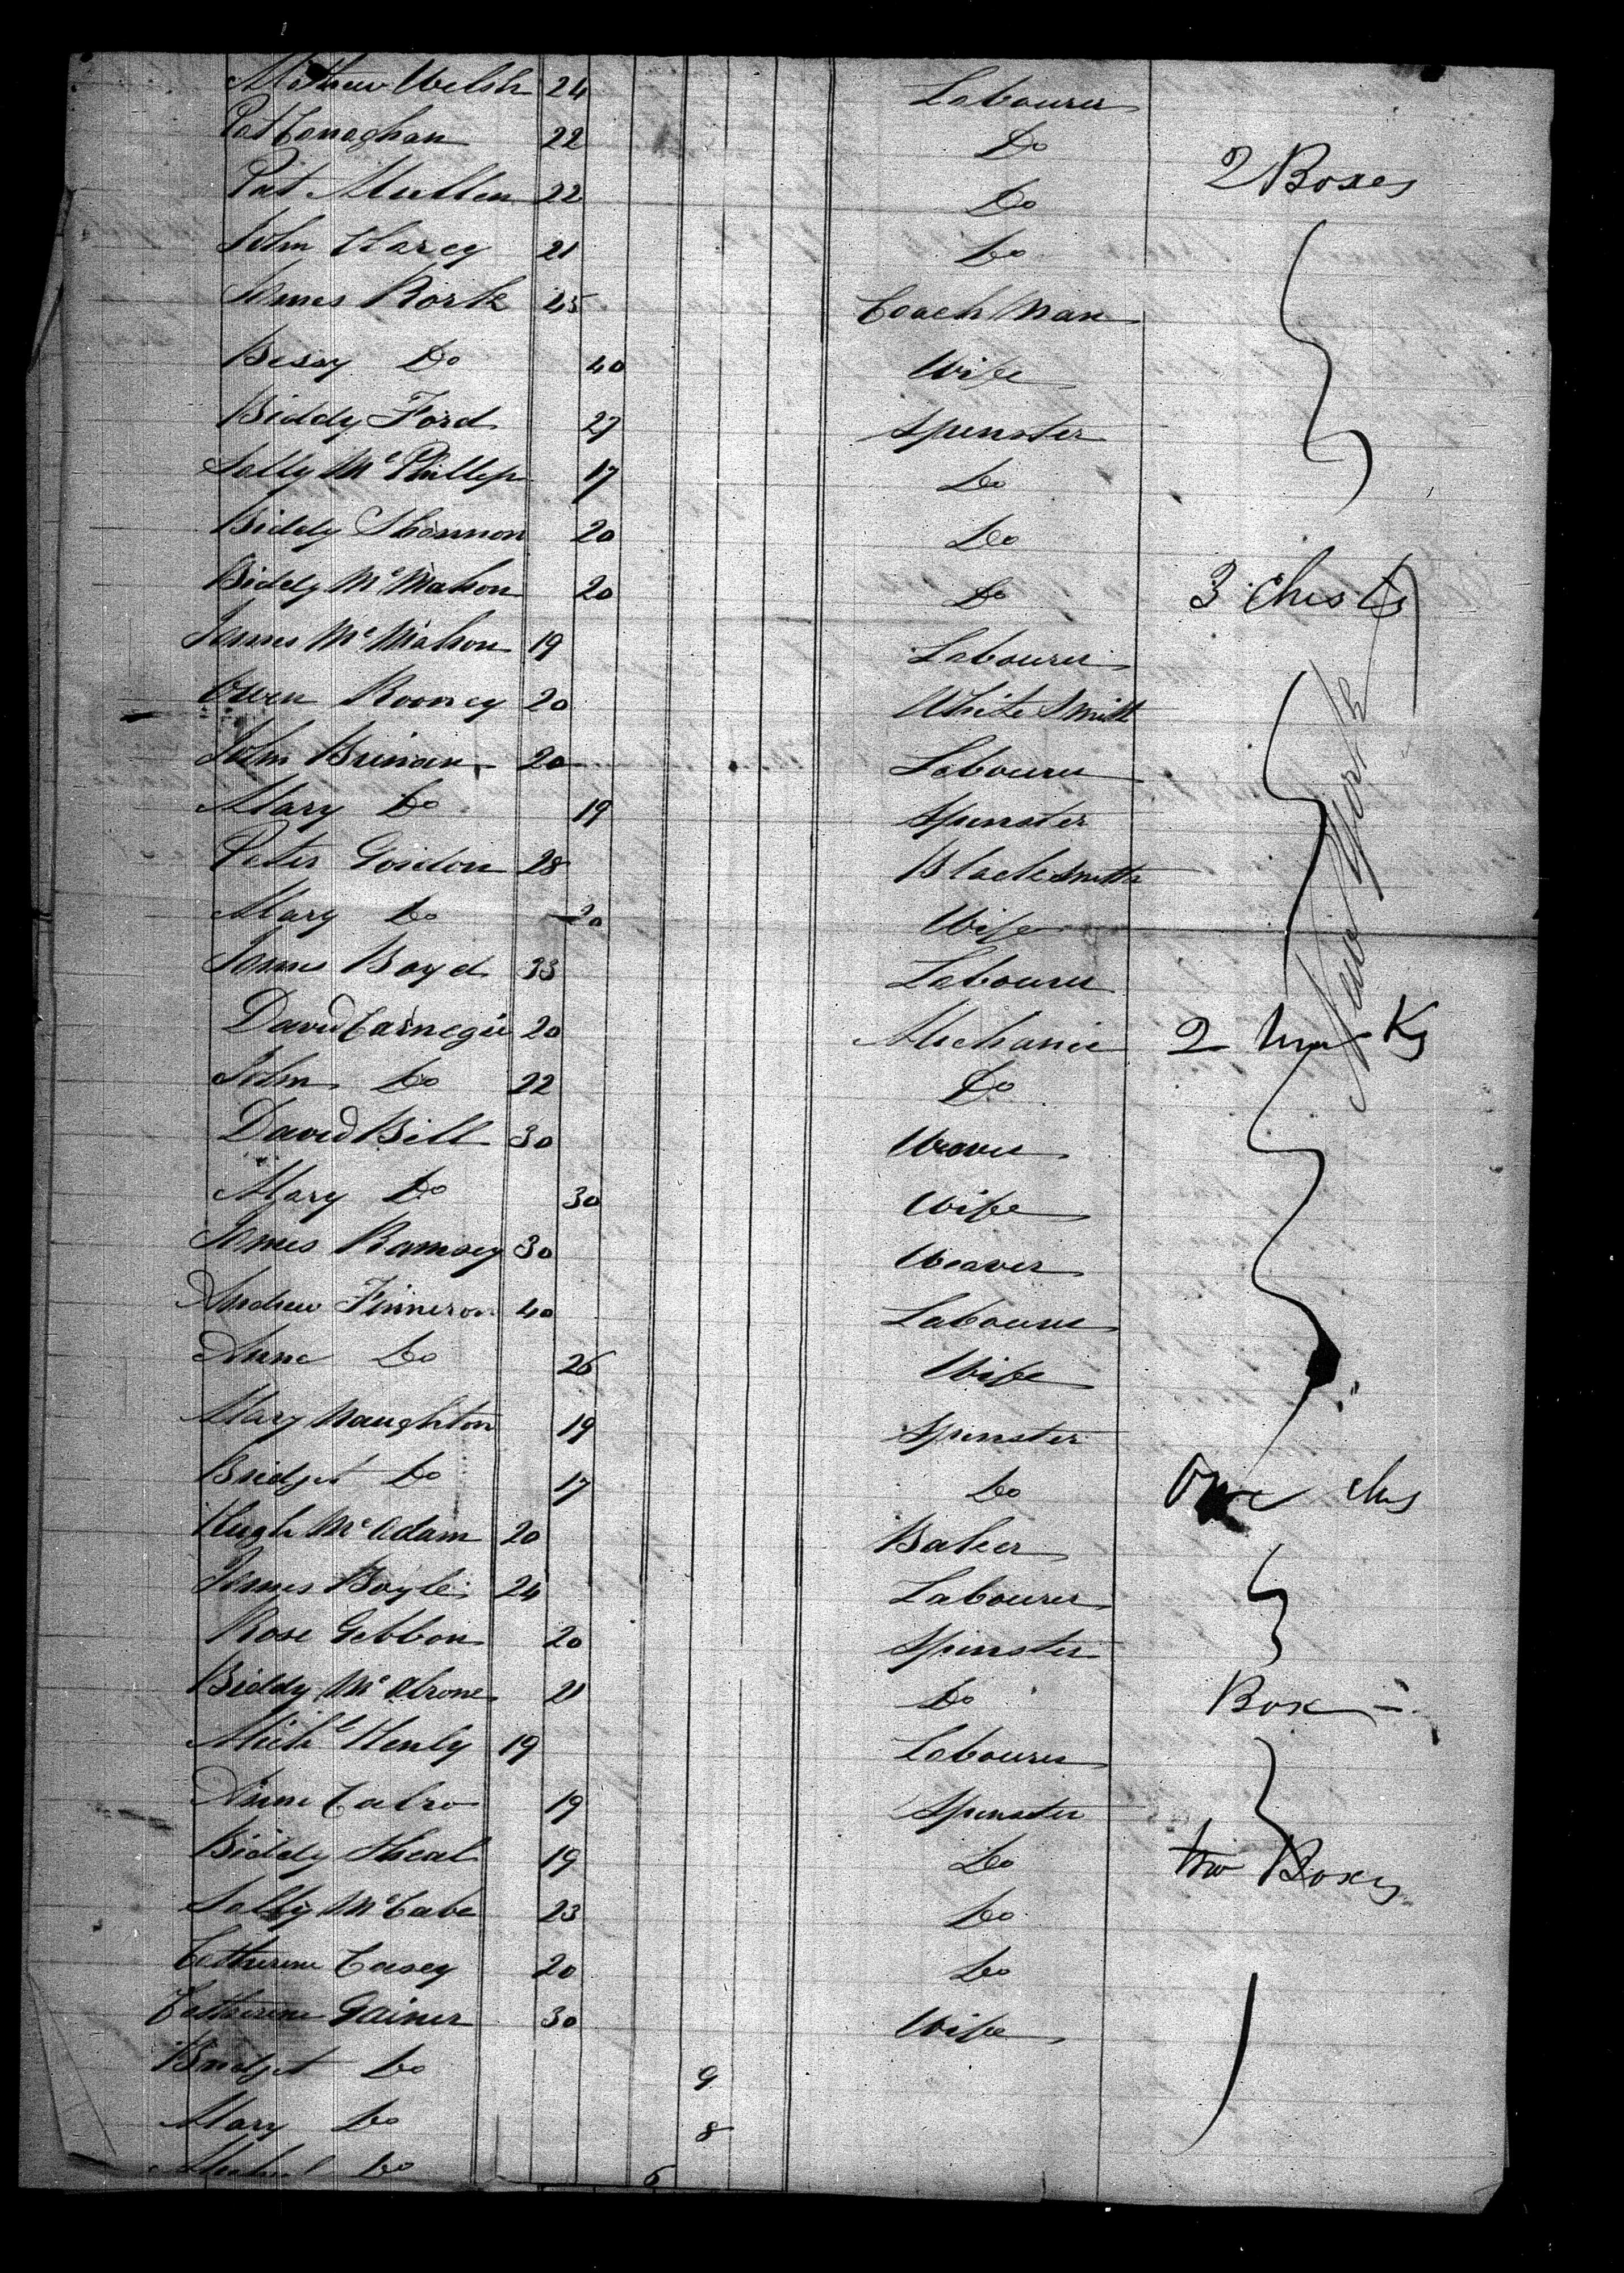 Mathew Welsh 24 Labourer
Pat Conaghan 22 Do
2 Boxes
Pat Mullen 22 Do
John Harcy 21 Do
James Rork 45 Coach Man
Bessy Do 40 Wife
Biddy Ford 27 Spinster
Sally McPhillip 17 Do
Biddy Shannon 20 Do
Biddy McMahon 20 Do 3 Chests
James McMahon 19 Labourer
Owen Rooney 20 White Smith
John Brinan 20 Labourer
Mary Do 19 Spinster
Peter Gordon 28 Blacksmith
Mary Do 20 Wife
New York
James Boyd 33 Labourer
David Carnegie 20 Mechanic 2
John Do 22 Do
David Bell 30 Weaver
Mary Do 30 Wife
James Ramsey 30 Weaver
Andrew Finneron 40 Labourer
Anne Do 26 Wife
Mary Naughton 19 Spinster
Bridget Do 17 Do One Ches
Hugh McAdam 20 Baker
James Boyle 24 Labourer
Rose Gibbon 20 Spinster
Biddy 21 Do Box
Michl Henly 19 Labourer
Anne 19 Spinster
Biddy Sheal 19 Do two Boxes
Sally McCabe 23 Do
Catherine Casey 20 Do
Catherine Gainer 30 Wife
Bridget Do 9
Mary Do 8
Michael Do 6